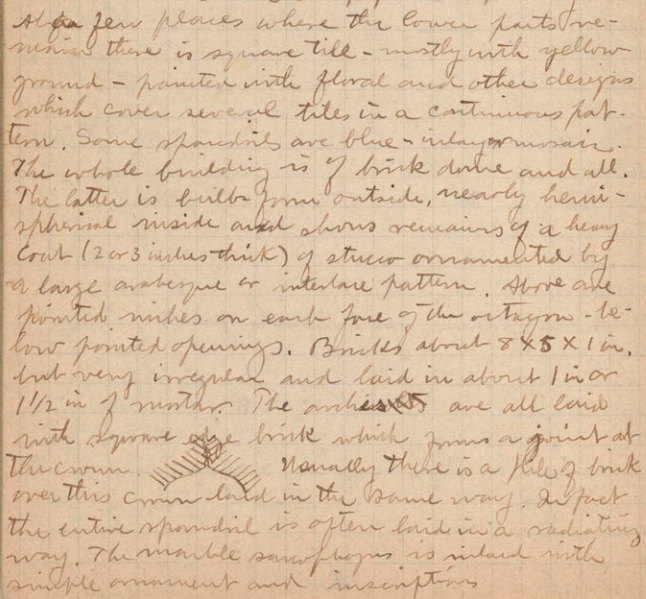 a few places where the lower parts re-
main there is square tile - mostly with yellow
ground - painted with floral and other designs
which cover several tiles in a continuous pat-
tern. Some spandrils are blue - inlay or mosaic.
The whole building is of brick dome and all.
The latter is built form outside, nearly hemi-
spherical inside and shows remains of a heavy
coat (2 or 3 inches thick) of stucco ornamented by
a large arabesque or interlace pattern. Above are
pointed niches on each face of the octagon - be-
low pointed openings. Bricks about 8 x 5 x 1 in.
but very irregular and laid in about 1 in or
1 1/2 in of mortar. The arches are all laid
with square edge brick which forms a joint at
the crown. Usually there is a pile of brick
over this crown laid in the same way. In fact
the entire spandril is often laid in a radiating
way. The marble sarcophagus is inlaid with
simple ornament and inscriptions